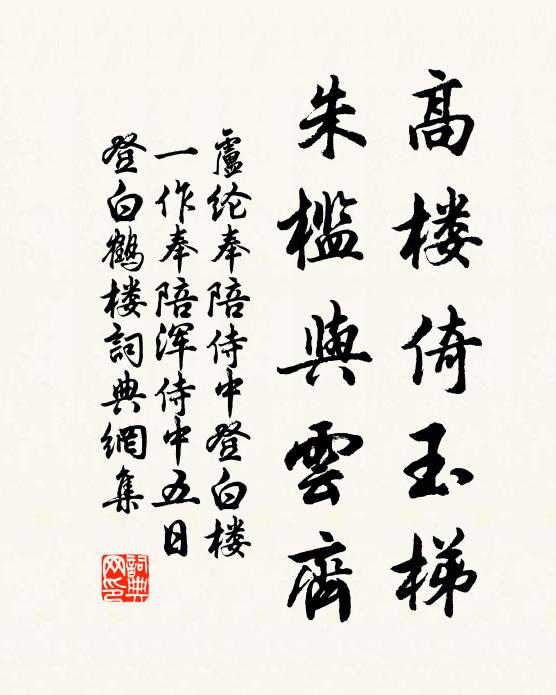 高楼倚玉梯
朱檻與雲齊
盧纶奉陪侍中登白楼
一作奉陪浑侍中五日
登白鶴楼詞典網集
詞典网印